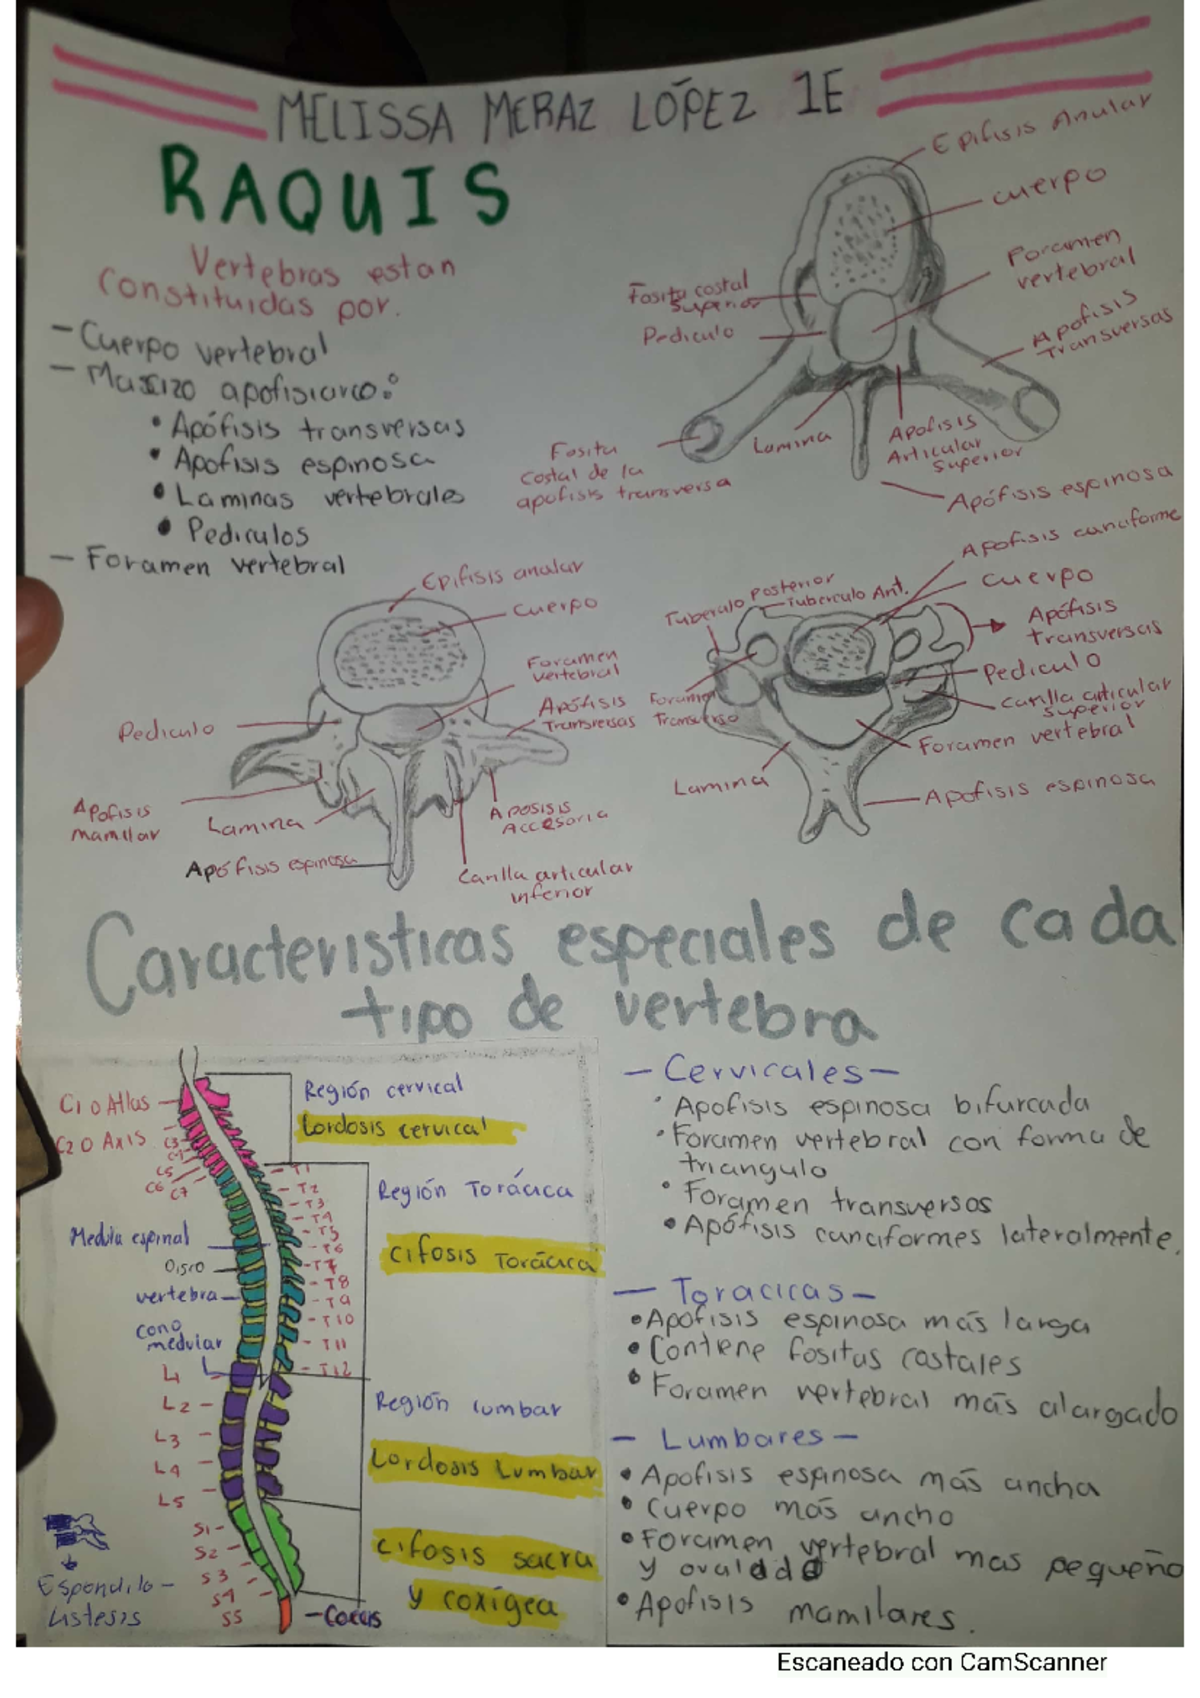 MELISSA MERAZ LÓPEZ 1E
RAQUIS
Vertebras estan
constituidas por.
- Cuerpo vertebral
- Masizo apofisiarco:
• Apófisis transversas
• Apofisis espinosa
• Laminas vertebrales
• Pediculos
- Foramen vertebral
Epifisis Anular
cuerpo
Foramen
vertebral
Apofisis
Transversas
Fosita costal
superior
Pediculo
Fosita
costal de la
apofisis transversa
Lamina
Apofisis
Articular
superior
Apófisis espinosa
Epifisis anular
cuerpo
Foramen
vertebral
Apófisis
Transversas
Pediculo
Apofisis
mamilar
Lamina
Apófisis espinosa
Aposisis
Accesoria
Carilla articular
inferior
Apofisis cunciforme
cuerpo
Tuberculo Posterior
Tuberculo Ant.
Apófisis
transversas
Pediculo
Carilla articular
superior
Foramen
Transverso
Foramen vertebral
Lamina
Apofisis espinosa
Caracteristicas especiales de cada
tipo de vertebra
C1 o Atlas
C2 o Axis
C3
C4
C5
C6
C7
Región cervical
Lordosis cervical
T1
T2
T3
T4
T5
T6
T7
T8
T9
T10
T11
T12
Región Torácica
cifosis Torácica
Medula espinal
Disco
vertebra
cono
medular
L1
L2
L3
L4
L5
Región lumbar
Lordosis Lumbar
S1
S2
S3
S4
S5
cifosis sacra
y coxígea
Espondilo-
listesis
- Coccis
- Cervicales -
• Apofisis espinosa bifurcada
• Foramen vertebral con forma de
triangulo
• Foramen transversos
• Apófisis cunciformes lateralmente.
- Toracicas -
• Apofisis espinosa más larga
• Contiene fositas costales
• Foramen vertebral más alargado
- Lumbares -
• Apofisis espinosa más ancha
• Cuerpo más ancho
• Foramen vertebral mas pequeño
y ovalado
• Apofisis mamilares.
Escaneado con CamScanner